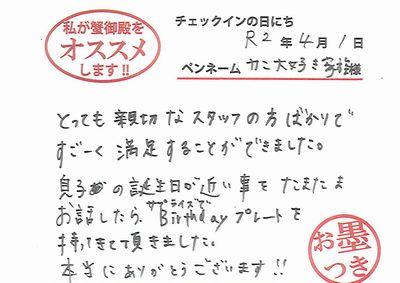 私が蟹御殿を
オススメ
します!!
チェックインの日にち
R2年4月1日
ペンネーム カニ大好き家族様
とっても親切なスタッフの方ばかりで
すごーく満足することができました。
息子の誕生日が近い事をたまたま
お話したら、サプライズでBirthdayプレートを
持ってきて頂きました。
本当にありがとうございます!!
お墨
つき